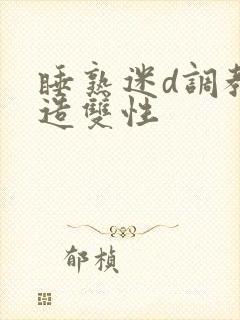 睡熟迷d調教
造雙性
郁楨